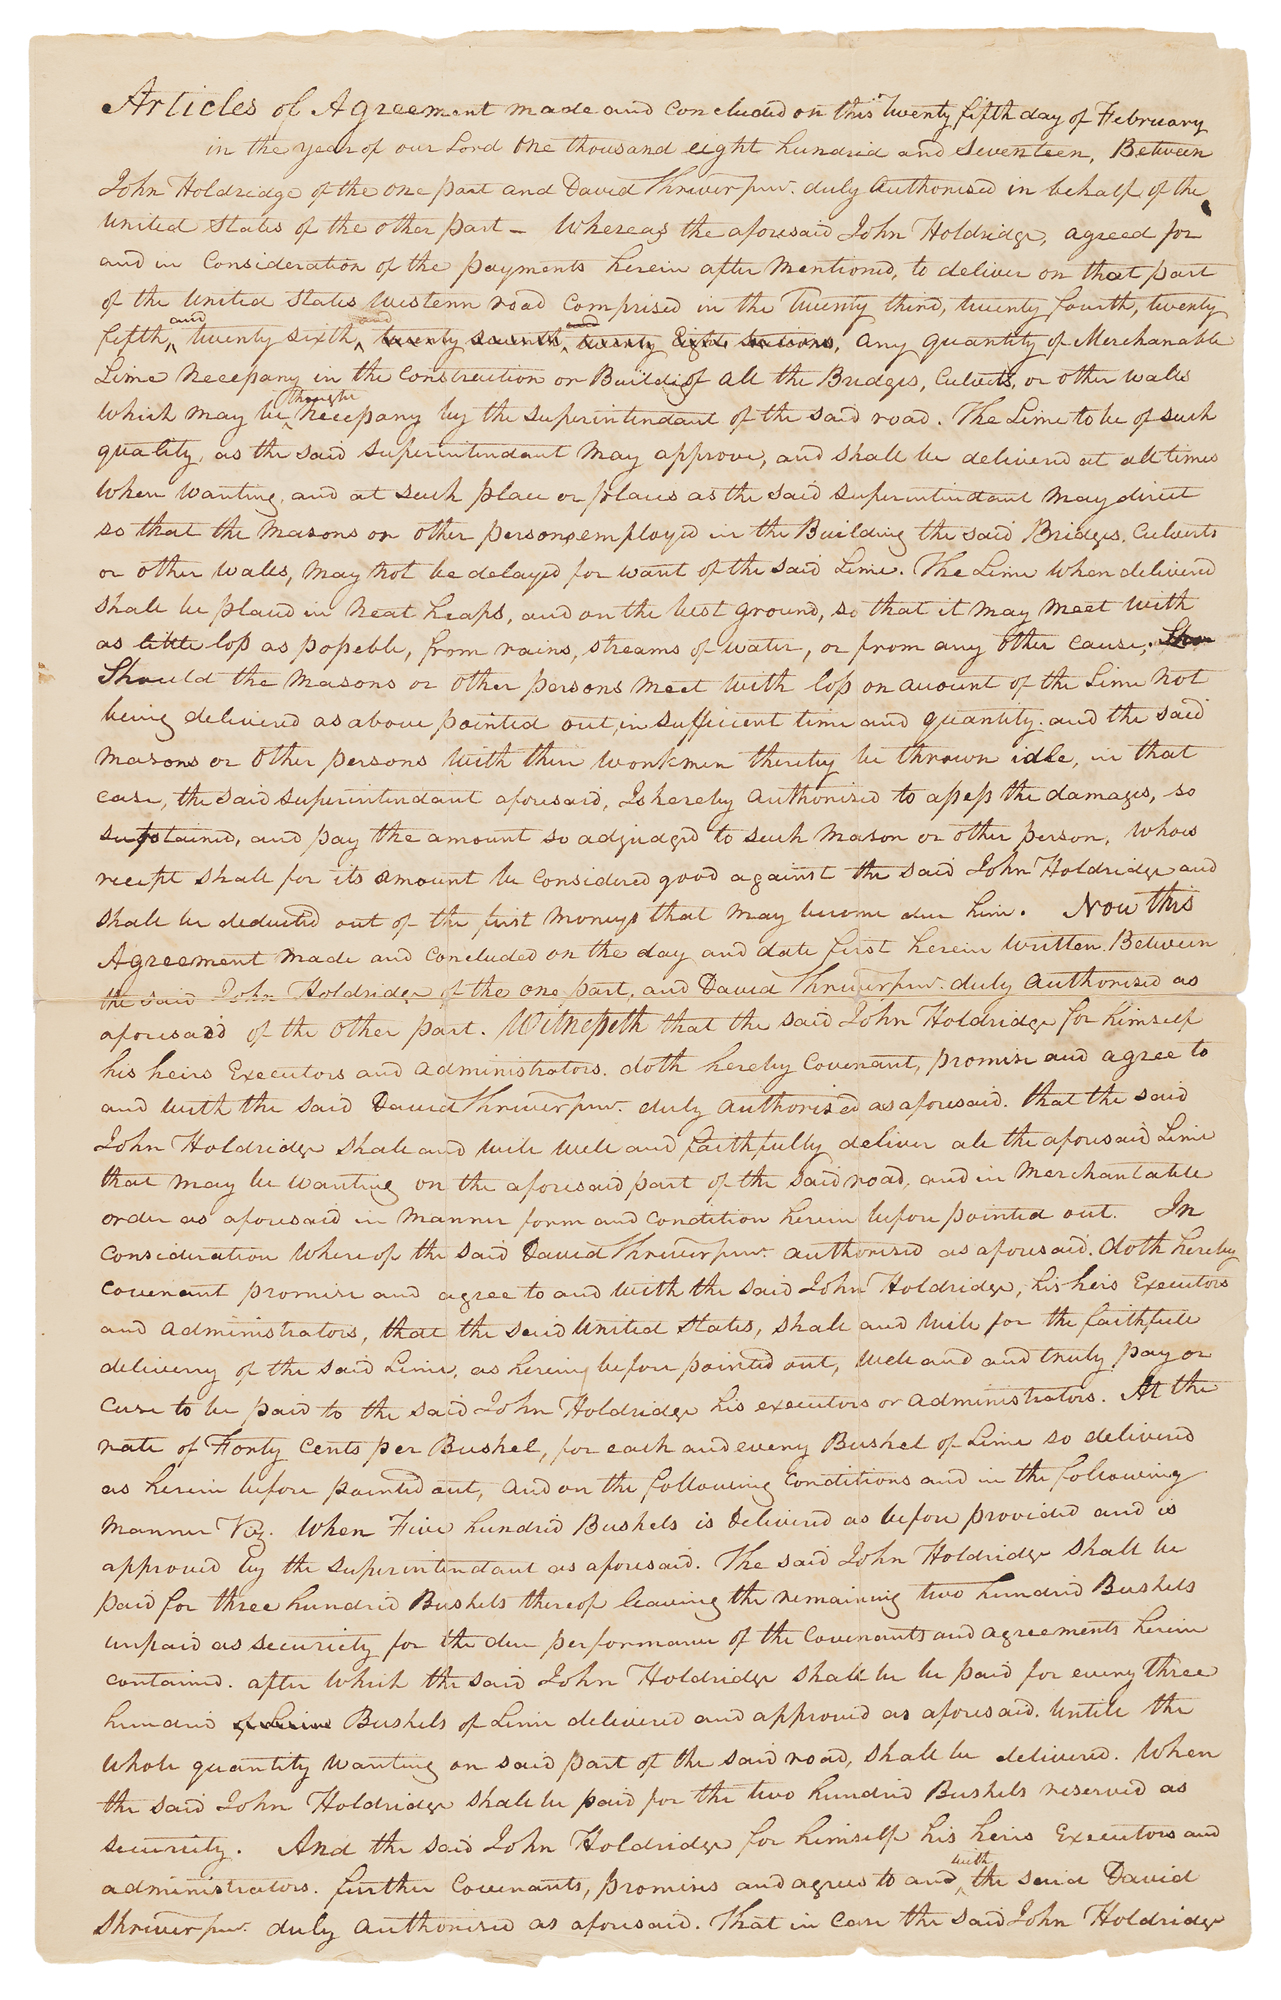 Articles of Agreement made and concluded on this Twenty fifth day of February
in the year of our Lord one thousand eight hundred and Seventeen, Between
John Holdridge of the one part and David Shriver jun.r duly Authorised in behalf of the
United States of the other part — Whereas the aforesaid John Holdridge, agreed for
and in Consideration of the payments herein after Mentioned, to deliver on that part
of the United States Western road comprised in the Twenty third, twenty fourth, twenty
fifth, and twenty sixth, and twenty seventh, and twenty Eight Sections, any quantity of Merchanable
Lime Necessary in the Construction or Building of all the Bridges, Culverts, or other walls
which may be thought Necessary by the Superintendant of the said road. The Lime to be of such
quality, as the said Superintendant May approve, and shall be delivered at all times
when wanting, and at such place or places as the said superintendant May direct
so that the Masons or other persons employed in the Building the said Bridges, Culverts
or other walls, May Not be delayed for want of the said Lime. The Lime When delivered
shall be placed in Neat heaps, and on the best ground, so that it May Meet With
as little loss as possible, from rains, streams of water, or from any other cause,
Should the Masons or other persons Meet With loss on account of the Lime Not
being delivered as above pointed out, in Sufficient time and quantity. and the said
Masons or other persons With their workmen thereby be thrown idle, in that
case, the said Superintendant aforesaid, Is hereby Authorised to assess the damages, so
sustained, and pay the amount so adjudged to such Mason or other person, Whose
receipt shall for its amount be Considered good against the said John Holdridge and
shall be deducted out of the first Moneys that May become due him. Now this
Agreement Made and Concluded on the day and date first herein Written. Between
the said John Holdridge of the one part, and David Shriver jun.r duly Authorised as
aforesaid of the other part. Witnesseth that the said John Holdridge for himself
his heirs Executors and administrators. doth hereby Covenant, promise and agree to
and With the said David Shriver jun.r duly Authorised as aforesaid. that the said
John Holdridge shall and will Well and faithfully deliver all the aforesaid Lime
that May be Wanting on the aforesaid part of the said road, and in Merchantable
order as aforesaid in Manner form and Condition herein before pointed out. In
Consideration Whereof the said David Shriver jun.r authorised as aforesaid. doth hereby
Covenant promise and agree to and With the said John Holdridge, his heirs Executors
and administrators, that the said United States, shall and Will for the faithfull
delivery of the said Lime, as herein before pointed out, Well and and truly pay or
Cause to be paid to the said John Holdridge his executors or administrators. At the
rate of Forty Cents per Bushel, for each and every Bushel of Lime so delivered
as herein before pointed out, and on the following Conditions and in the following
Manner Viz. When Five hundred Bushels is delivered as before provided and is
approved by the superintendant as aforesaid. The said John Holdridge shall be
paid for three hundred Bushels thereof leaving the remaining two hundred Bushels
unpaid as security for the due performance of the Covenants and agreements herein
contained. after Which the said John Holdridge shall be be paid for every three
hundred of Lime Bushels of Lime delivered and approved as aforesaid. Untill the
Whole quantity Wanting on said part of the said road, shall be delivered. When
the said John Holdridge shall be paid for the two hundred Bushels reserved as
security. And the said John Holdridge for himself his heirs Executors and
administrators. further Covenants, promises and agrees to and with the said David
Shriver jun.r duly Authorised as aforesaid. That in Case the said John Holdridge